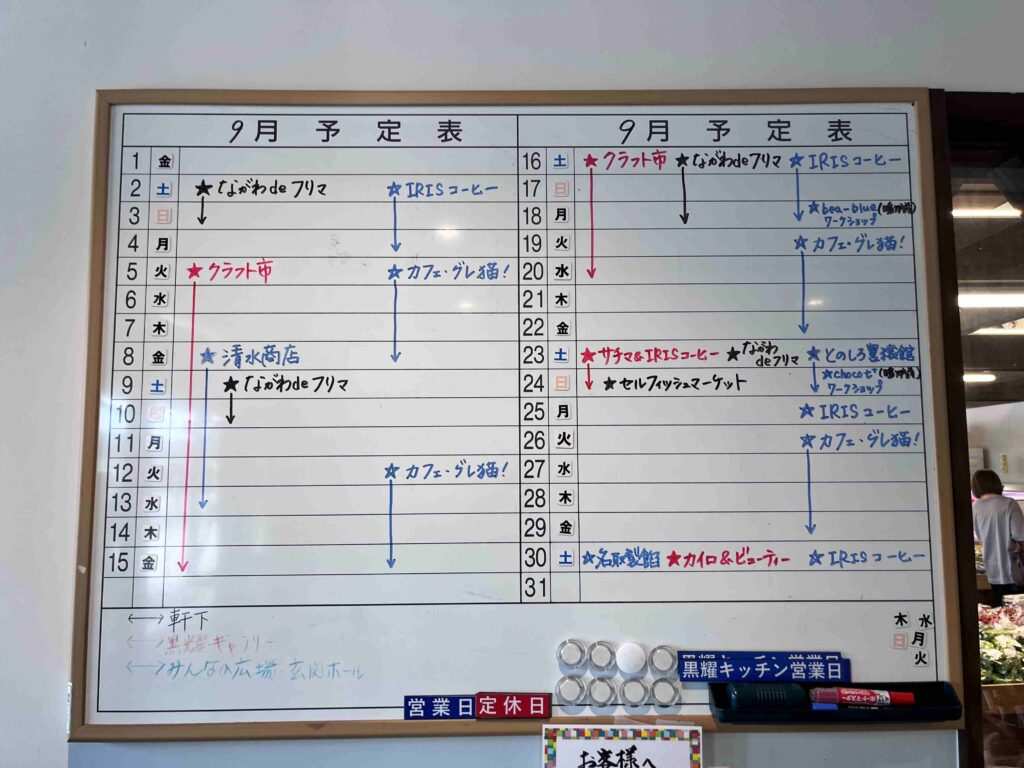 9月 予 定 表
1 金
2 土 ★ながわdeフリマ ☆IRISコーヒー
3 日
4 月
5 火 ★クラフト市 ☆カフェ・グレ猫!
6 水
7 木
8 金 ★清水商店
9 土 ★ながわdeフリマ
10
11 月
12 火 ☆カフェ・グレ猫!
13 水
14 木
15 金
9月 予 定 表
16 土 ★クラフト市 ★ながわdeフリマ ☆IRISコーヒー
17 日
18 月 ★bea-blue
ワークショップ
19 火 ☆カフェ・グレ猫!
20 水
21 木
22 金
23 土 ★サチマ&IRISコーヒー ★ながわdeフリマ
24 日 ★セルフィッシュマーケット ★chocot
ワークショップ
25 月 ☆IRISコーヒー
26 火 ☆カフェ・グレ猫!
27 水
28 木
29 金
30 土 ☆名取製餡 ★カイロ&ビューティー ☆IRISコーヒー
31
←→軒下
←→黒耀ギャラリー
←→みんなの広場・玄関ホール
木 水
日 月
火
黒耀キッチン営業日
黒耀キッチン営業日
営業日 定休日
お客様へ